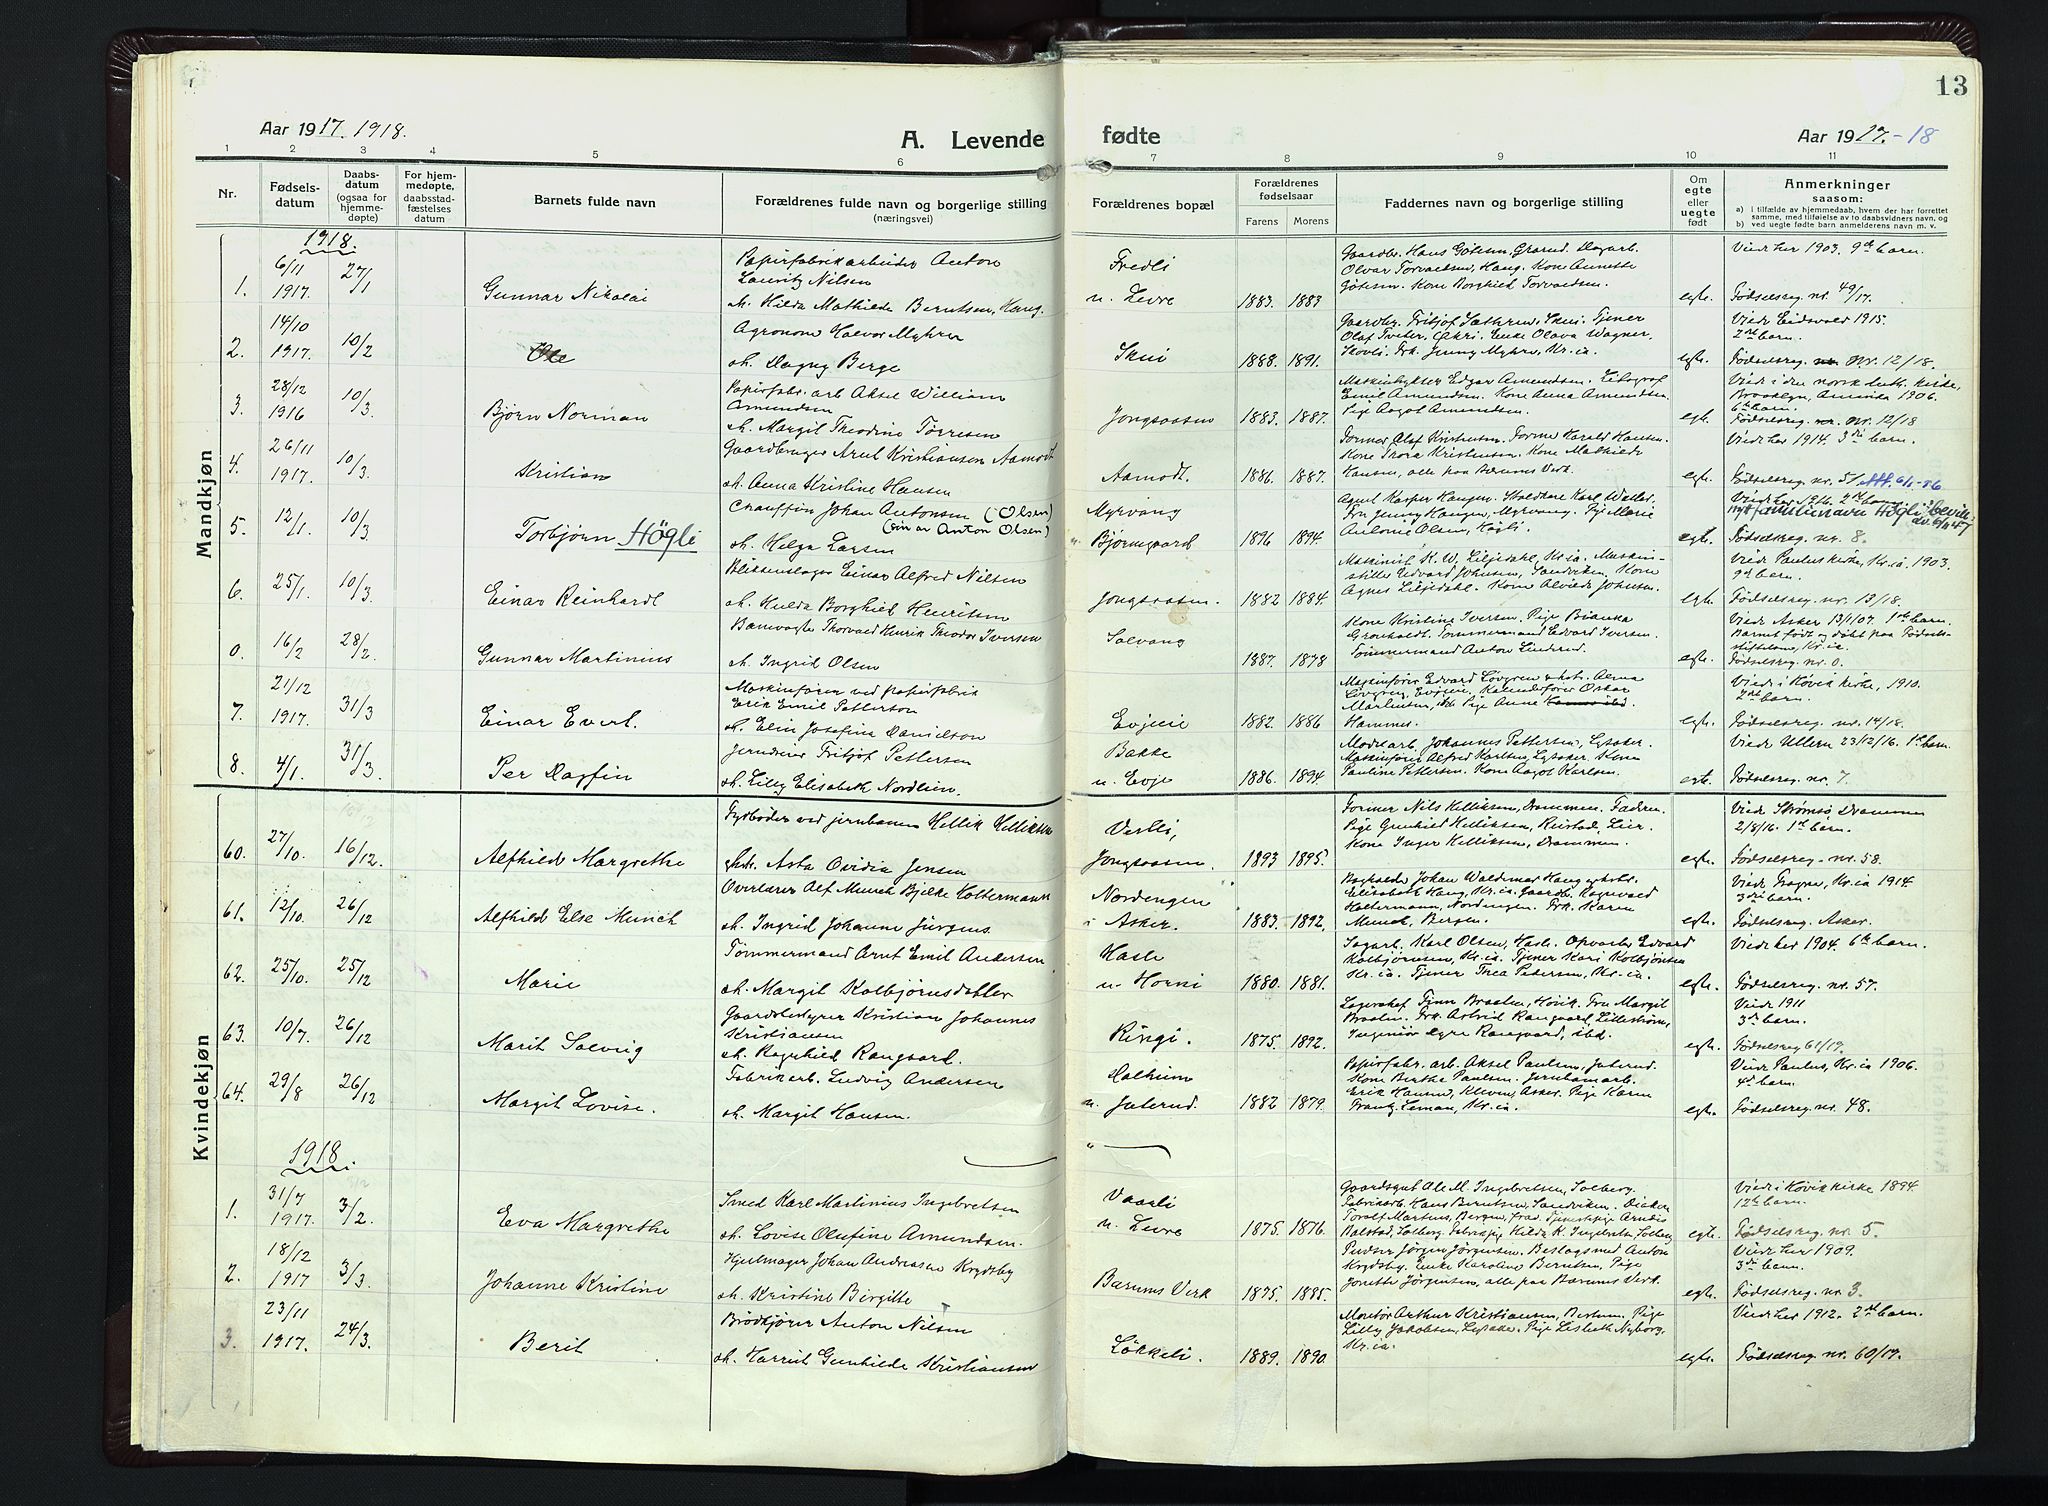 13
Aar 1917. 1918.
A. Levende
fødte
Aar 1917.-18
1 2 3 4 5 6 7 8 9 10 11
Nr.
Fødsels-
datum
Daabs-
datum
(ogsaa for
hjemme-
døpte)
For hjem-
medøpte,
daabsstad-
fæstelses
datum
Barnets fulde navn
Forældrenes fulde navn og borgerlige stilling
(næringsvei)
Forældrenes bopæl
Forældrenes
fødselsaar
Farens Morens
Faddernes navn og borgerlige stilling
Om
egte
eller
uegte
født
Anmerkninger
saasom:
a) i tilfælde av hjemmedaab, hvem der har forrettet
samme, med tilføielse av to daabsvidners navn, og
b) ved uegte fødte barn anmelderens navn m. v.
Mandkjøn
1918.
1. 6/11 1917. 27/1 Gunnar Nikolai
Papirfabrikarbeider Anton
Lauritz Nilsen
oh. Hilda Mathilde Berntsen, Haug.
Fredli
u. Levre 1883. 1883
Gaardbr. Hans Götesen, Grorud. Dagarb.
Olvar Torvaldsen, Haug. Kone Annette
Götesen. Kone Borghild Torvaldsen.
egte.
Viedt her 1903. 9de barn.
Fødselsreg. nr. 49/17.
2. 14/10 1917. 10/2 Ole
Agronom Halvor Myhrer
oh. Dagny Berge
Skui 1888. 1891.
egte.
Viedt Eidsvold 1915.
2det barn.
Fødselsreg. nr. 12/18.
3. 28/12 1916 10/3. Bjørn Norman
Papirfabr. arb Aksel William
Amundsen
oh. Margit Theodine Tørresen
Jongsaasen 1883. 1887.
Emil Amundsen. Kone Anna Amundsen.
Pige Aagot Amundsen.
egte.
Viedt i den norsk luth. kirke,
Brooklyn, Amerika 1906.
6te barn.
Fødselsreg. nr. 12/18
4. 26/11 1917. 10/3. Kristian
Gaardbruger Arnt Kristiansen Aamodt
oh. Anna Kristine Hansen
Aamodt. 1886. 1887.
Former Olaf Kristensen. Former Harald Hansen.
Kone Thora Kristensen. Kone Mathilde
Hansen, alle paa Bærums Verk.
egte.
Viedt her 1914. 3die barn.
Fødselsreg. nr. 51
5. 12/1. 10/3. Torbjørn Högli
Chauffør Johan Antonsen (Olsen)
(sön av Anton Olsen)
oh. Helga Larsen
Myrvang
u. Bjørnegaard 1896 1894.
Antonie Olsen, Högli.
egte.
Viedt her 1916. 2det barn
Fødselsreg. nr. 8.
6. 25/1. 10/3. Einar Reinhardt
Blikkenslager Einar Alfred Nilsen
oh. Hulda Borghild Henriksen
Jongsaasen. 1882 1884.
Maskinist K. W. Liljedahl, Kr.ia. Maskin-
Agnes Liljedahl. Kone Alvilde Johnsen.
egte.
Viedt Paulus kirke, Kr.ia. 1903.
9de barn.
Fødselsreg. nr. 13/18.
0. 16/2 28/2. Gunnar Martinius
Banevogte Thorvald Henrik Theodor Iversen
oh. Ingrid Olsen
Solvang 1887. 1878
Kone Kristine Iversen. Pige Bianka
Gronholdt. Tømmermand Edvard Iversen.
Tømmermand Anton Linderud.
egte.
Viedt Asker 13/1 07. 1ste barn.
Barnet født og døbt paa Fødsels-
stiftelsen, Kr.ia.
Fødselsreg. nr. 0.
7. 21/12 1917. 31/3 Einar Evert.
Maskinfører ved papirfabrik
Erik Emil Petterson
oh. Elin Josefina Danielson
Evjeie 1882. 1886
Maskinfører Edvard Lövgren &hst. Alma
Lövgren, Evjeie, Kalanderfører Oskar
Martinsen, ibd. Pige Anna
Hammer.
egte.
Viedt i Høvik kirke, 1910.
2det barn.
Fødselsreg. nr. 14/18.
8. 4/1. 31/3. Per Dagfin
Jerndreier Fritjof Pettersen
oh. Lilly Elisabeth Nordlien.
Bakke
u. Evje 1886. 1894.
Modelarb. Johannes Pettersen, Lysaker.
Maskinfører Alfred Karlsen, Lysaker. Kone
Pauline Pettersen. Kone Aagot Karlsen.
egte.
Viedt Ullern 23/12/16. 1ste barn.
Fødselsreg. nr. 7.
Kvindekjøn
60. 27/10. 16/12. Alfhild Margrethe
Fyrbøder ved jernbanen Hellik Helliksen
oh. Asta Ovidia Jensen
Vestli,
Jongsaasen. 1893 1895.
Former Nils Helliksen, Drammen. Faderen.
Pige Gunhild Helliksen, Reistad, Lier.
Kone Inger Helliksen, Drammen.
egte.
Viedt Strømsø, Drammen
2/8/16. 1ste barn.
Fødselsreg. nr. 58.
61. 12/10. 26/12 Alfhild Else Munch
Overlærer Alf Munch Bjelke Holtermann
oh. Ingrid Johanne Jürgens
Nordengen
i Asker. 1883. 1892.
Boghholder Johan Waldemar Haug &hst.
Elisabeth Haug, Kr.ia. Gaardbr. Ragnvald
Holtermann, Nordengen. Frk. Karen
Munch, Bergen.
egte.
Viedt Frogner, Kr.ia 1914.
3die barn.
Fødselsreg. Asker.
62. 25/10. 25/12 Marie
Tømmermand Arnt Emil Andersen
oh. Margit Kolbjørnsdatter
Hasle
u. Horni 1880. 1881.
Sagarb. Karl Olsen, Hasle. Opvarter Edvard
Kolbjørnsen, Kr.ia. Tjener Kari Kolbjørnsen
Kr.ia. Tjener Thea Pedersen, Kr.ia.
egte.
Viedt her 1904. 6te barn.
Fødselsreg. nr. 57.
63. 10/7. 26/12 Marit Solveig
Gaardsbestyrer Kristian Johannes
Kristiansen
oh. Ragnhild Rangaard.
Ringi. 1875. 1892.
Lagerchef Finn Braaten, Hövik. Fru Margit
Braaten. Frk. Astrid Rangaard, Lillestrøm,
egte.
Viedt 1911
3die barn.
Fødselsreg 61/17.
64. 29/8 26/12 Margit Lovise.
Fabrikarb. Ludvig Andersen
oh. Margit Hansen.
u. Jaterud. 1882 1879.
Papirfabr. arb. Aksel Paulsen, Jaterud.
Kone Berthe Paulsen. Jernbanearb.
egte.
Viedt Paulus, Kr.ia 1906.
4de barn.
Fødselsreg. nr. 48.
1918.
1. 31/7 1917. 3/2. Eva Margrethe
Smed Karl Martinius Ingebretsen
oh. Lovise Olufine Amundsen.
Vaarli
u. Levre 1875. 1876.
Gaardsgut Ole M. Ingebretsen, Solberg.
Fabrikarb. Hans Berntsen, Sandviken.
egte.
Viedt i Høvik kirke 1894.
12te barn.
Fødselsreg. nr. 5.
2. 18/12 1917 3/3. Johanne Kristine
Hjulmager Johan Andreasen Krydsby
oh. Kristine Birgitte
Bærums Verk 1875. 1885.
Pudser Jørgen Jørgensen. Beslagsmed Anton
Krydsby. Enke Karoline Berntsen. Pige
Jonette Jørgensen, alle paa Bærums Verk.
egte.
Viedt her 1909.
3die barn.
Fødselsreg. nr. 3.
3. 23/11 1917. 24/3. Berit
Brödkjører Anton Nilsen
oh. Harriet Gunhilde Kristiansen
Løkkeli. 1889. 1890.
Montør Arthur Kristiansen, Bestum. Pige
Lilly Jakobsen, Lysaker. Pige Lisbeth Nyborg,
Kr.ia.
egte.
Viedt her 1912. 2det barn.
Fødselsreg. nr. 60/17.